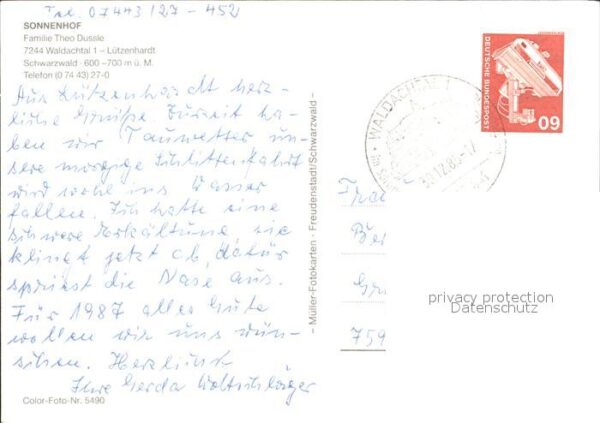 Tel. 07443/27-452
SONNENHOF
Familie Theo Dussle
7244 Waldachtal 1 – Lützenhardt
Schwarzwald · 600–700 m ü. M.
Telefon (0 74 43) 27-0
Aus Lützenhardt herz-
liche Grüße. Zurzeit ha-
ben wir Tauwetter un-
sere morgige Schlittenfahrt
wird wohl ins Wasser
fallen. Ich hatte eine
schwere Erkältung, sie
klingt jetzt ab, dafür
die Nase aus.
Für 1987 alles Gute
wollen wir uns wün-
schen. Herzlichst
Ihre Gerda
Color-Foto-Nr. 5490
– Müller-Fotokarten · Freudenstadt/Schwarzwald –
WALDACHTAL 1
30.12.86-17
DEUTSCHE BUNDESPOST
60
Be
Gr
759
privacy protection
Datenschutz